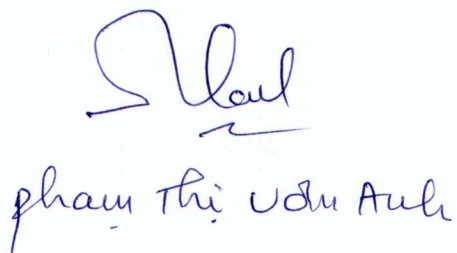 phạm Thị Vân Anh